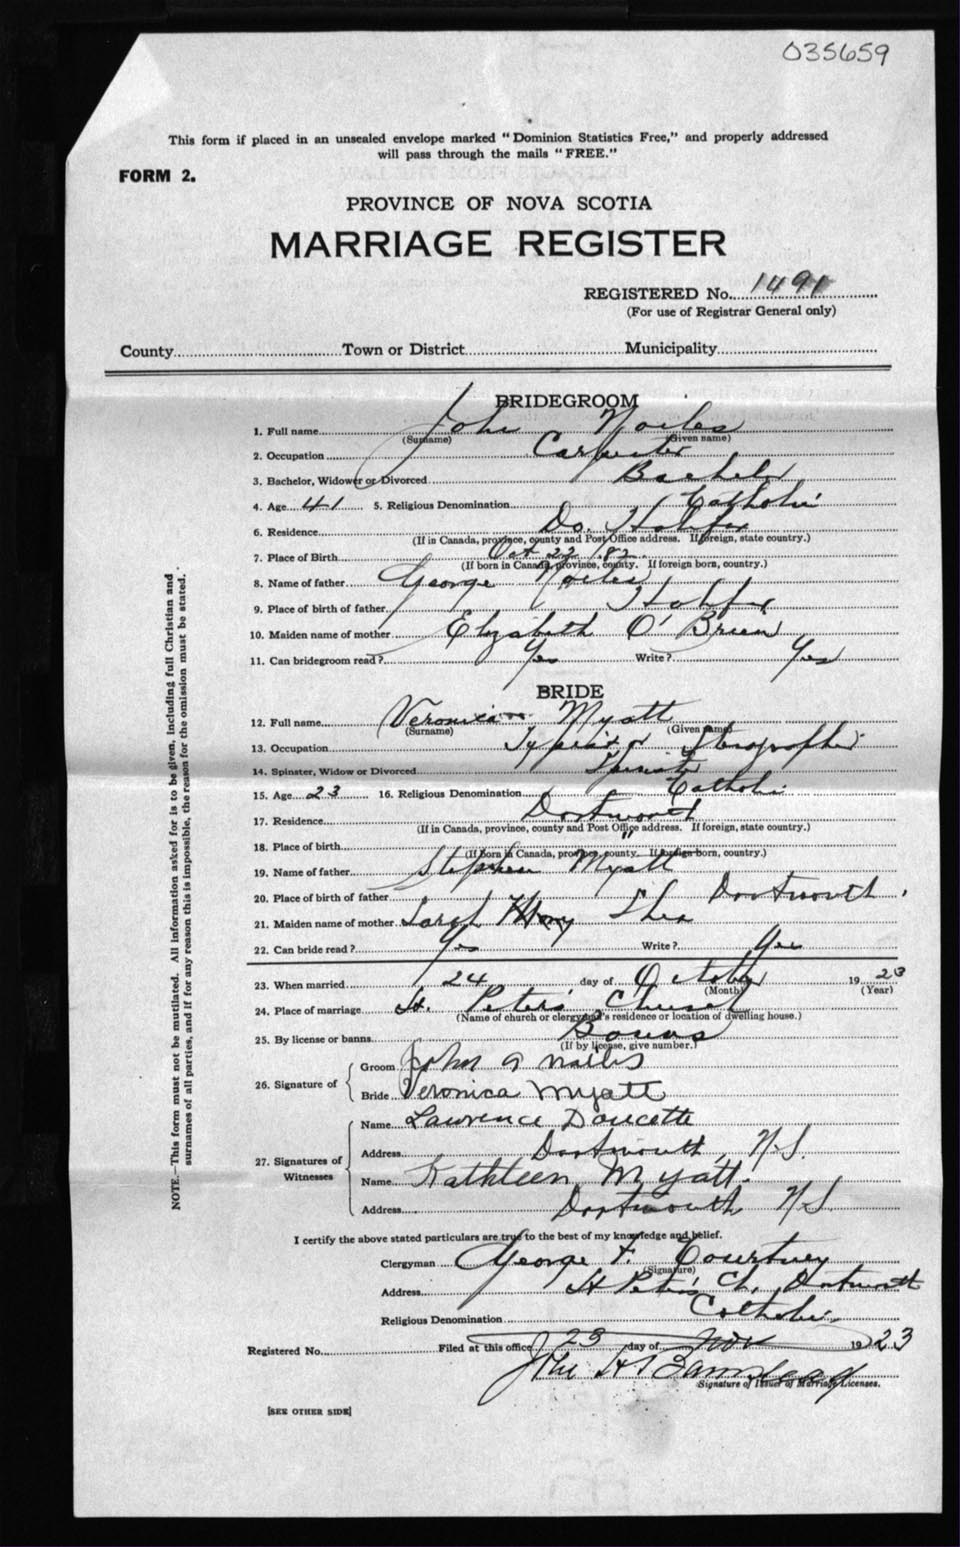 035659
This form if placed in an unsealed envelope marked "Dominion Statistics Free," and properly addressed
will pass through the mails "FREE."
FORM 2.
PROVINCE OF NOVA SCOTIA
MARRIAGE REGISTER
REGISTERED No. 1491
(For use of Registrar General only)
County Town or District Municipality
BRIDEGROOM
1. Full name John Noiles
(Surname) (Given name)
2. Occupation Carpenter
3. Bachelor, Widower or Divorced Bachelor
4. Age 41 5. Religious Denomination Catholic
6. Residence Do. Halifax
(If in Canada, province, county and Post Office address. If foreign, state country.)
7. Place of Birth Oct 22 182
(If born in Canada, province, county. If foreign born, country.)
8. Name of father George Noiles
9. Place of birth of father Halifax
10. Maiden name of mother Elizabeth O'Brien
11. Can bridegroom read? Yes Write? Yes
BRIDE
12. Full name Veronica Myatt
(Surname) (Given name)
13. Occupation Stenographer
14. Spinster, Widow or Divorced Spinster
15. Age 23 16. Religious Denomination Catholic
17. Residence Dartmouth
(If in Canada, province, county and Post Office address. If foreign, state country.)
18. Place of birth "
(If born in Canada, province, county. If foreign born, country.)
19. Name of father Stephen Myatt
20. Place of birth of father Dartmouth
21. Maiden name of mother Sarah Shea
22. Can bride read? Yes Write? Yes
23. When married 24 day of October 1923
(Month) (Year)
24. Place of marriage St. Peter's Church
(Name of church or clergyman's residence or location of dwelling house.)
25. By license or banns Banns
(If by license, give number.)
26. Signature of
Groom John A Noiles
Bride Veronica Myatt
27. Signatures of Witnesses
Name Lawrence Doucette
Address Dartmouth, N.S.
Name Kathleen Myatt.
Address Dartmouth N.S.
I certify the above stated particulars are true to the best of my knowledge and belief.
Clergyman George F. Courtney
(Signature)
Address St Peter's Ch. Dartmouth
Religious Denomination Catholic
Registered No. Filed at this office 23 day of Nov 1923
Signature of Issuer of Marriage Licenses.
[SEE OTHER SIDE]
NOTE.—This form must not be mutilated. All information asked for is to be given, including full Christian and
surnames of all parties, and if for any reason this is impossible, the reason for the omission must be stated.